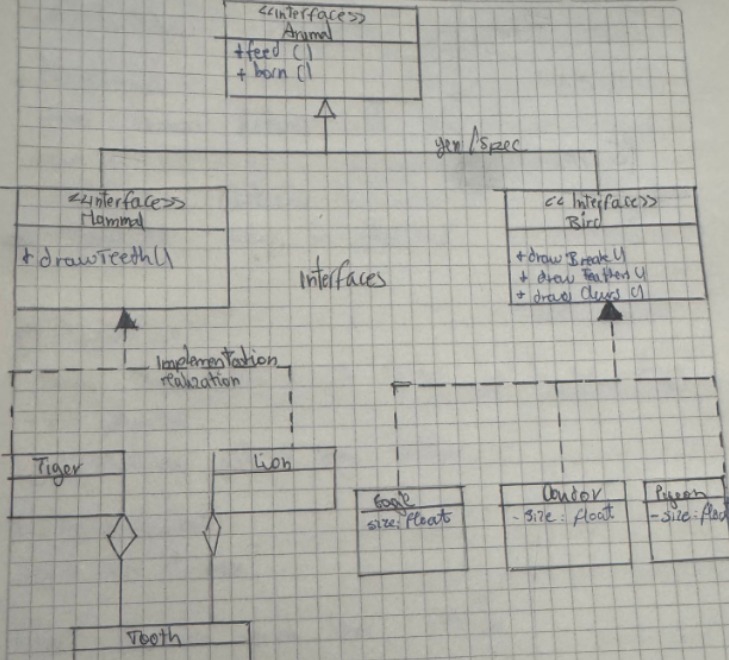 <<interface>>
Animal
+feed ()
+ born ()
gen/spec
<<interface>>
Mammal
+ drawTeeth()
<< Interface>>
Bird
+draw Break()
+ draw Feathers()
+ draw Claws ()
Interfaces
Implementation
realization
Tiger
Lion
Eagle
size: float
Condor
- Size: float
Pigeon
- size: float
Tooth